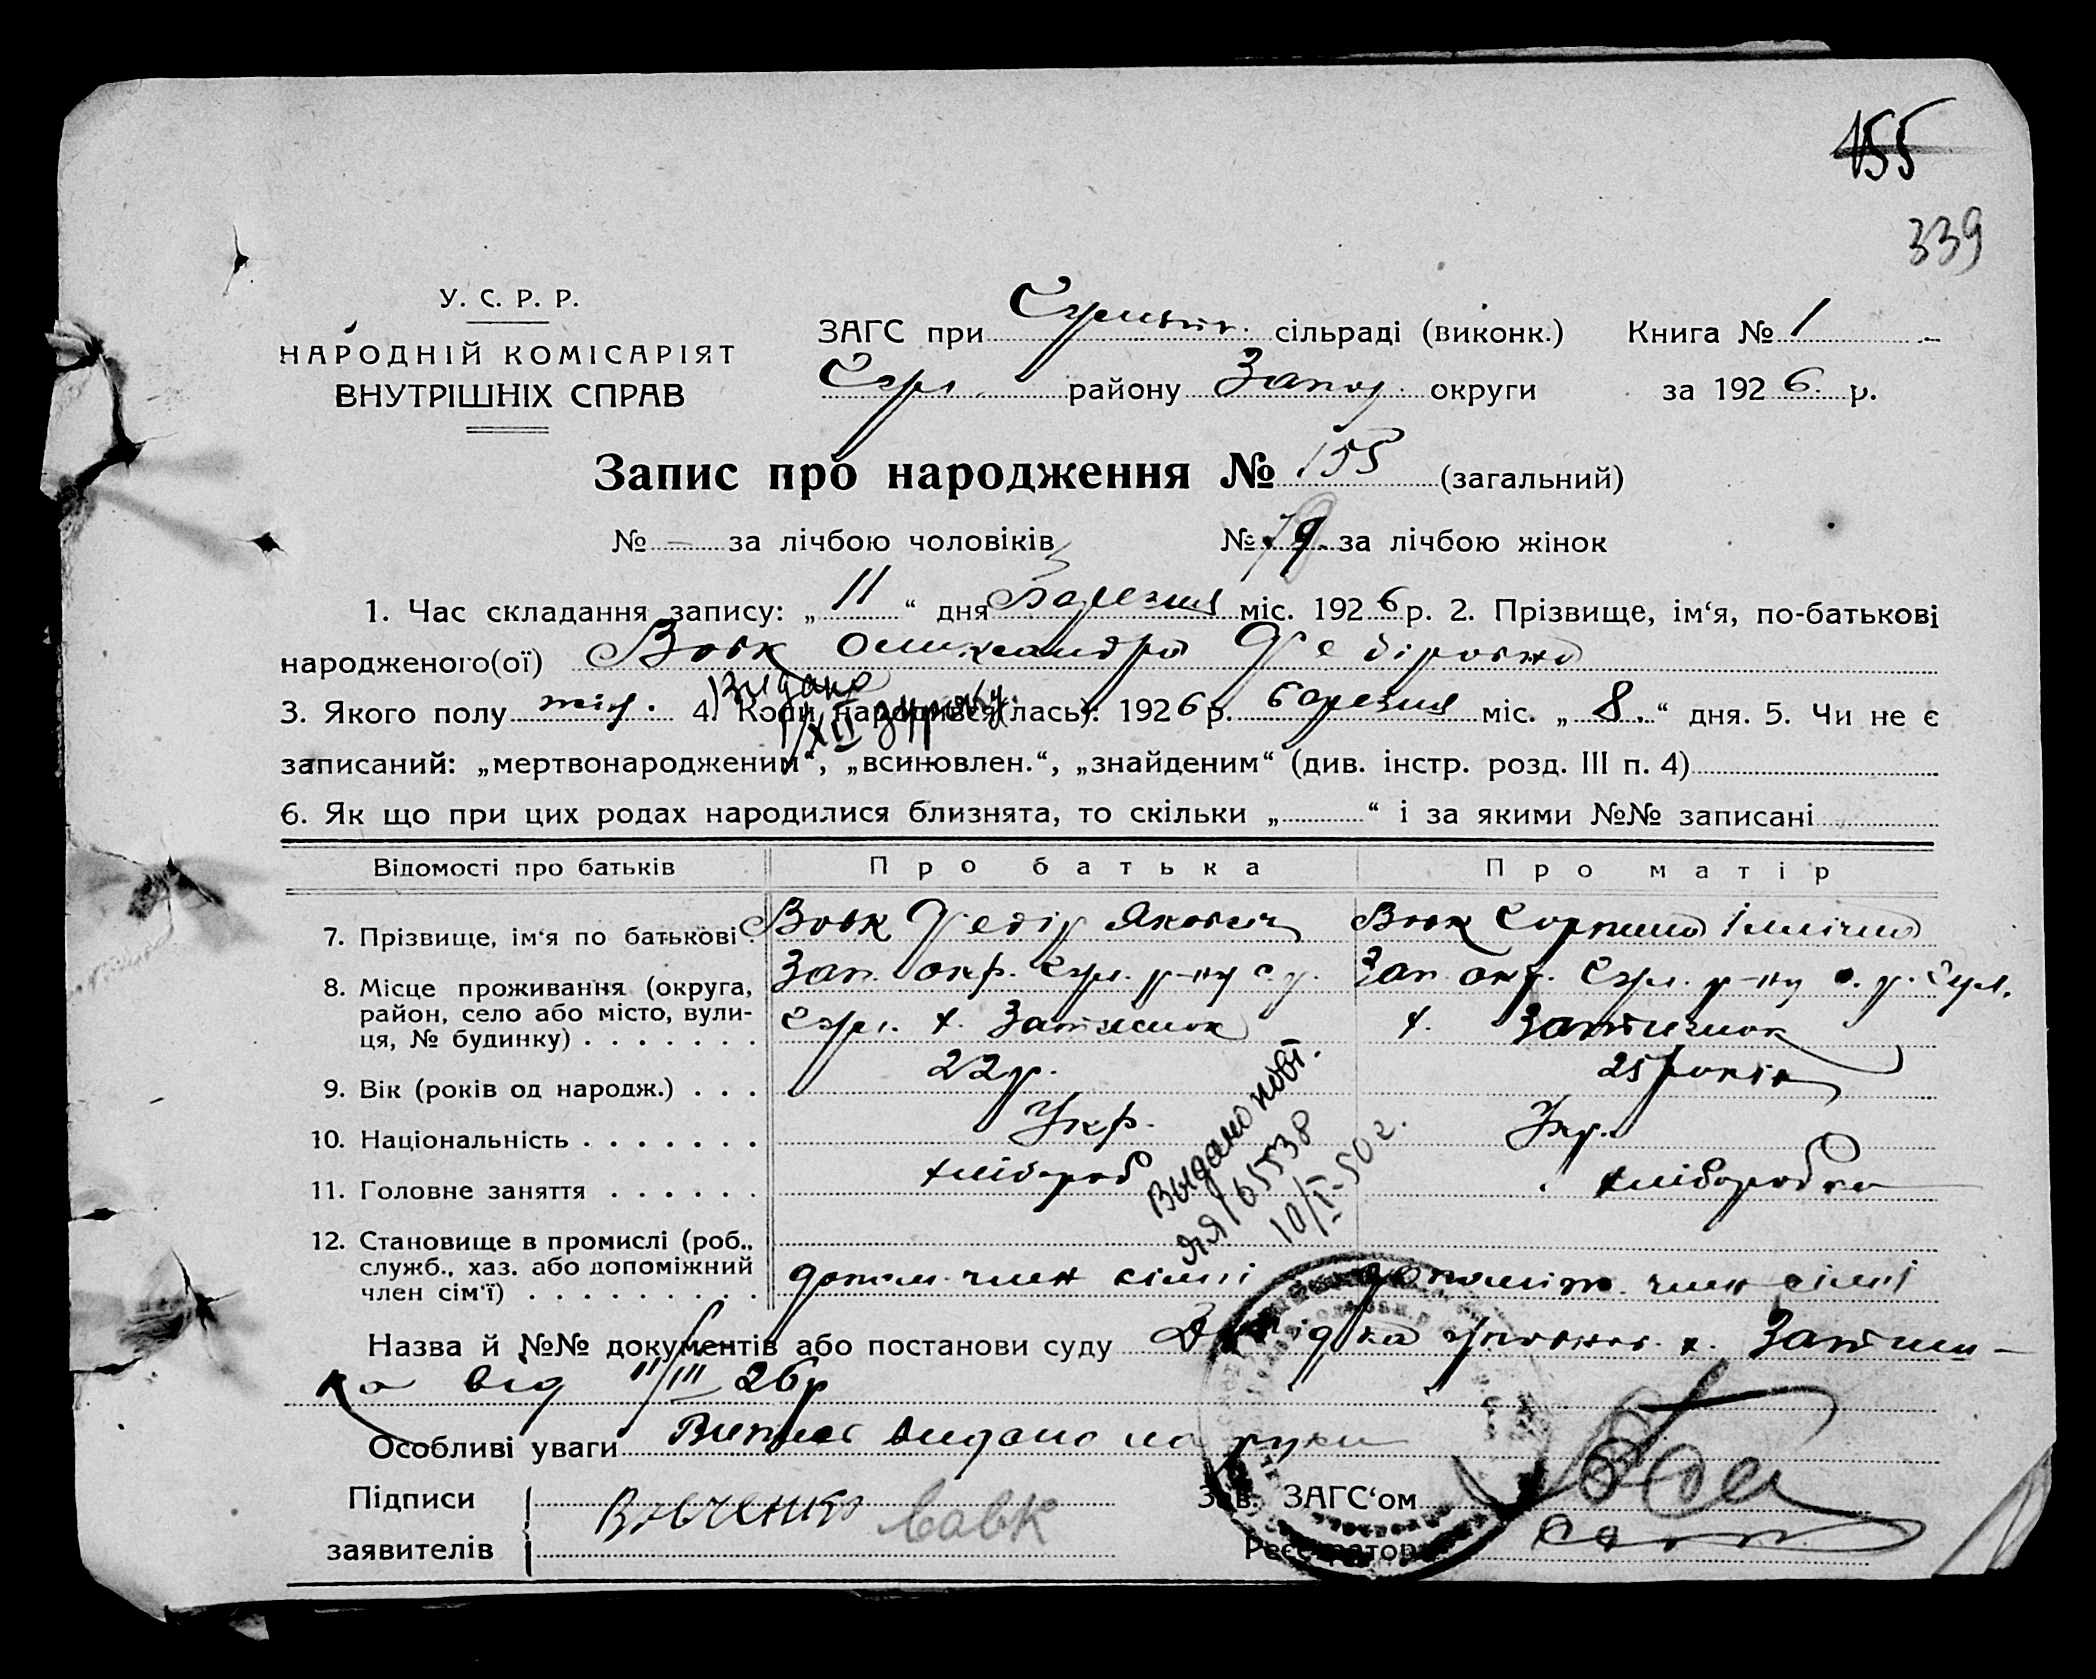 155
339
У. С. Р. Р.
НАРОДНІЙ КОМІСАРІЯТ
ВНУТРІШНІХ СПРАВ
ЗАГС при сільраді (виконк.) Книга № 1
району Запор. округи за 1926 р.
Запис про народження № 155 (загальний)
№ — за лічбою чоловіків № 79 за лічбою жінок
1. Час складання запису: „ 11 “ дня Березня міс. 1926 р. 2. Прізвище, ім‘я, по-батькові
народженого(ої) Вовк Олександра Федіровна
Видано
3. Якого полу жін. 4. Коли народився(лась): 1926 р. березня міс. „ 8. “ дня. 5. Чи не є
записаний: „мертвонародженим“, „всиновлен.“, „знайденим“ (див. інстр. розд. III п. 4)
6. Як що при цих родах народилися близнята, то скільки „ “ і за якими №№ записані
Відомості про батьків Про батька Про матір
7. Прізвище, ім‘я по батькові . Вовк Федір Якович Вовк
8. Місце проживання (округа, Зап. окр. р-ну с. Зап. окр. р-ну
район, село або місто, вули- х. Затишок х. Затишок
ця, № будинку)
9. Вік (років од народж.) . . . 22 р. 25 років
10. Національність Укр. Укр.
11. Головне заняття хлібороб хліборобка
12. Становище в промислі (роб.,
служб., хаз. або допоміжний
член сім‘ї) допом. член сімні допоміж. член сімні
Выдано повт.
ЯЯ 165538
10/I-50 г.
Назва й №№ документів або постанови суду Довідка уповнов. х. Затиш-
ка від 11/III 26 р
Особливі уваги Витяг видано на руки
Підписи Вовченко Вовк Зав. ЗАГС‘ом
заявителів Реєстратор